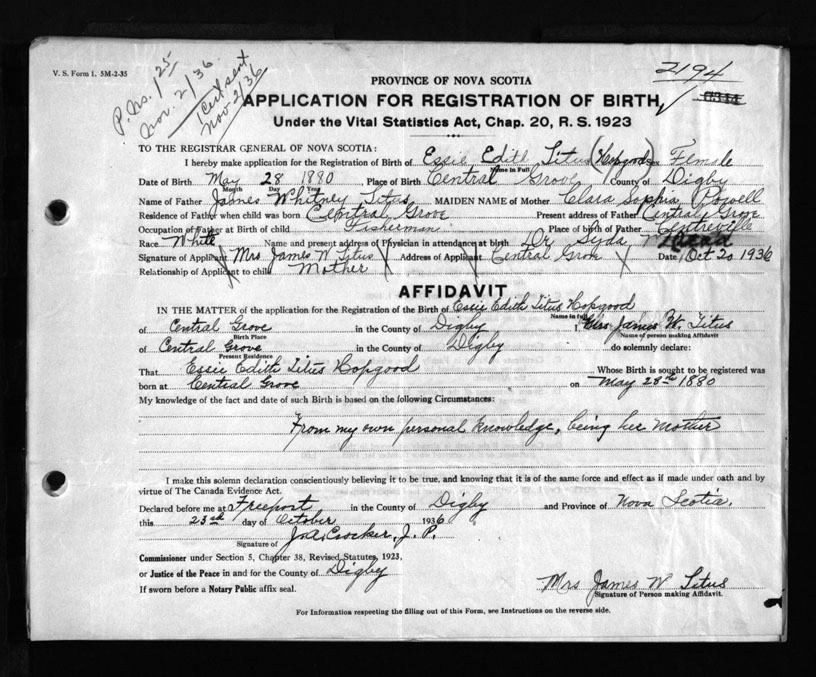 V. S. Form 1. 5M-2-35
P. No. 1/25
Nov. 2/36
1 Cert sent
Nov 2/36
2194
PROVINCE OF NOVA SCOTIA
APPLICATION FOR REGISTRATION OF BIRTH
Under the Vital Statistics Act, Chap. 20, R. S. 1923
TO THE REGISTRAR GENERAL OF NOVA SCOTIA:
I hereby make application for the Registration of Birth of Essie Edith Titus (Hopgood) Female
Name in Full
Date of Birth May 28 1880 Place of Birth Central Grove County of Digby
Month Day Year
Name of Father James Whitney Titus MAIDEN NAME of Mother Clara Sophia Powell
Residence of Father when child was born Central Grove Present address of Father Central Grove
Occupation of Father at Birth of child Fisherman Place of birth of Father Centreville
Race White Name and present address of Physician in attendance at birth Dr
Signature of Applicant Mrs James W Titus Address of Applicant Central Grove Date Oct 20 1936
Relationship of Applicant to child Mother
AFFIDAVIT
IN THE MATTER of the application for the Registration of the Birth of Essie Edith Titus Hopgood
Name in full
of Central Grove in the County of Digby I, Mrs James W. Titus
Birth Place Name of person making Affidavit
of Central Grove in the County of Digby do solemnly declare:
Present Residence
That Essie Edith Titus Hopgood Whose Birth is sought to be registered was
born at Central Grove on May 28th 1880
My knowledge of the fact and date of such Birth is based on the following Circumstances:
From my own personal knowledge, being her Mother
I make this solemn declaration conscientiously believing it to be true, and knowing that it is of the same force and effect as if made under oath and by
virtue of The Canada Evidence Act.
Declared before me at Freeport in the County of Digby and Province of Nova Scotia.
this 23rd day of October 1936
Signature of Crocker, J. P.
Commissioner under Section 5, Chapter 38, Revised Statutes, 1923,
or Justice of the Peace in and for the County of Digby
If sworn before a Notary Public affix seal.
Mrs James W Titus
Signature of Person making Affidavit.
For Information respecting the filling out of this Form, see Instructions on the reverse side.